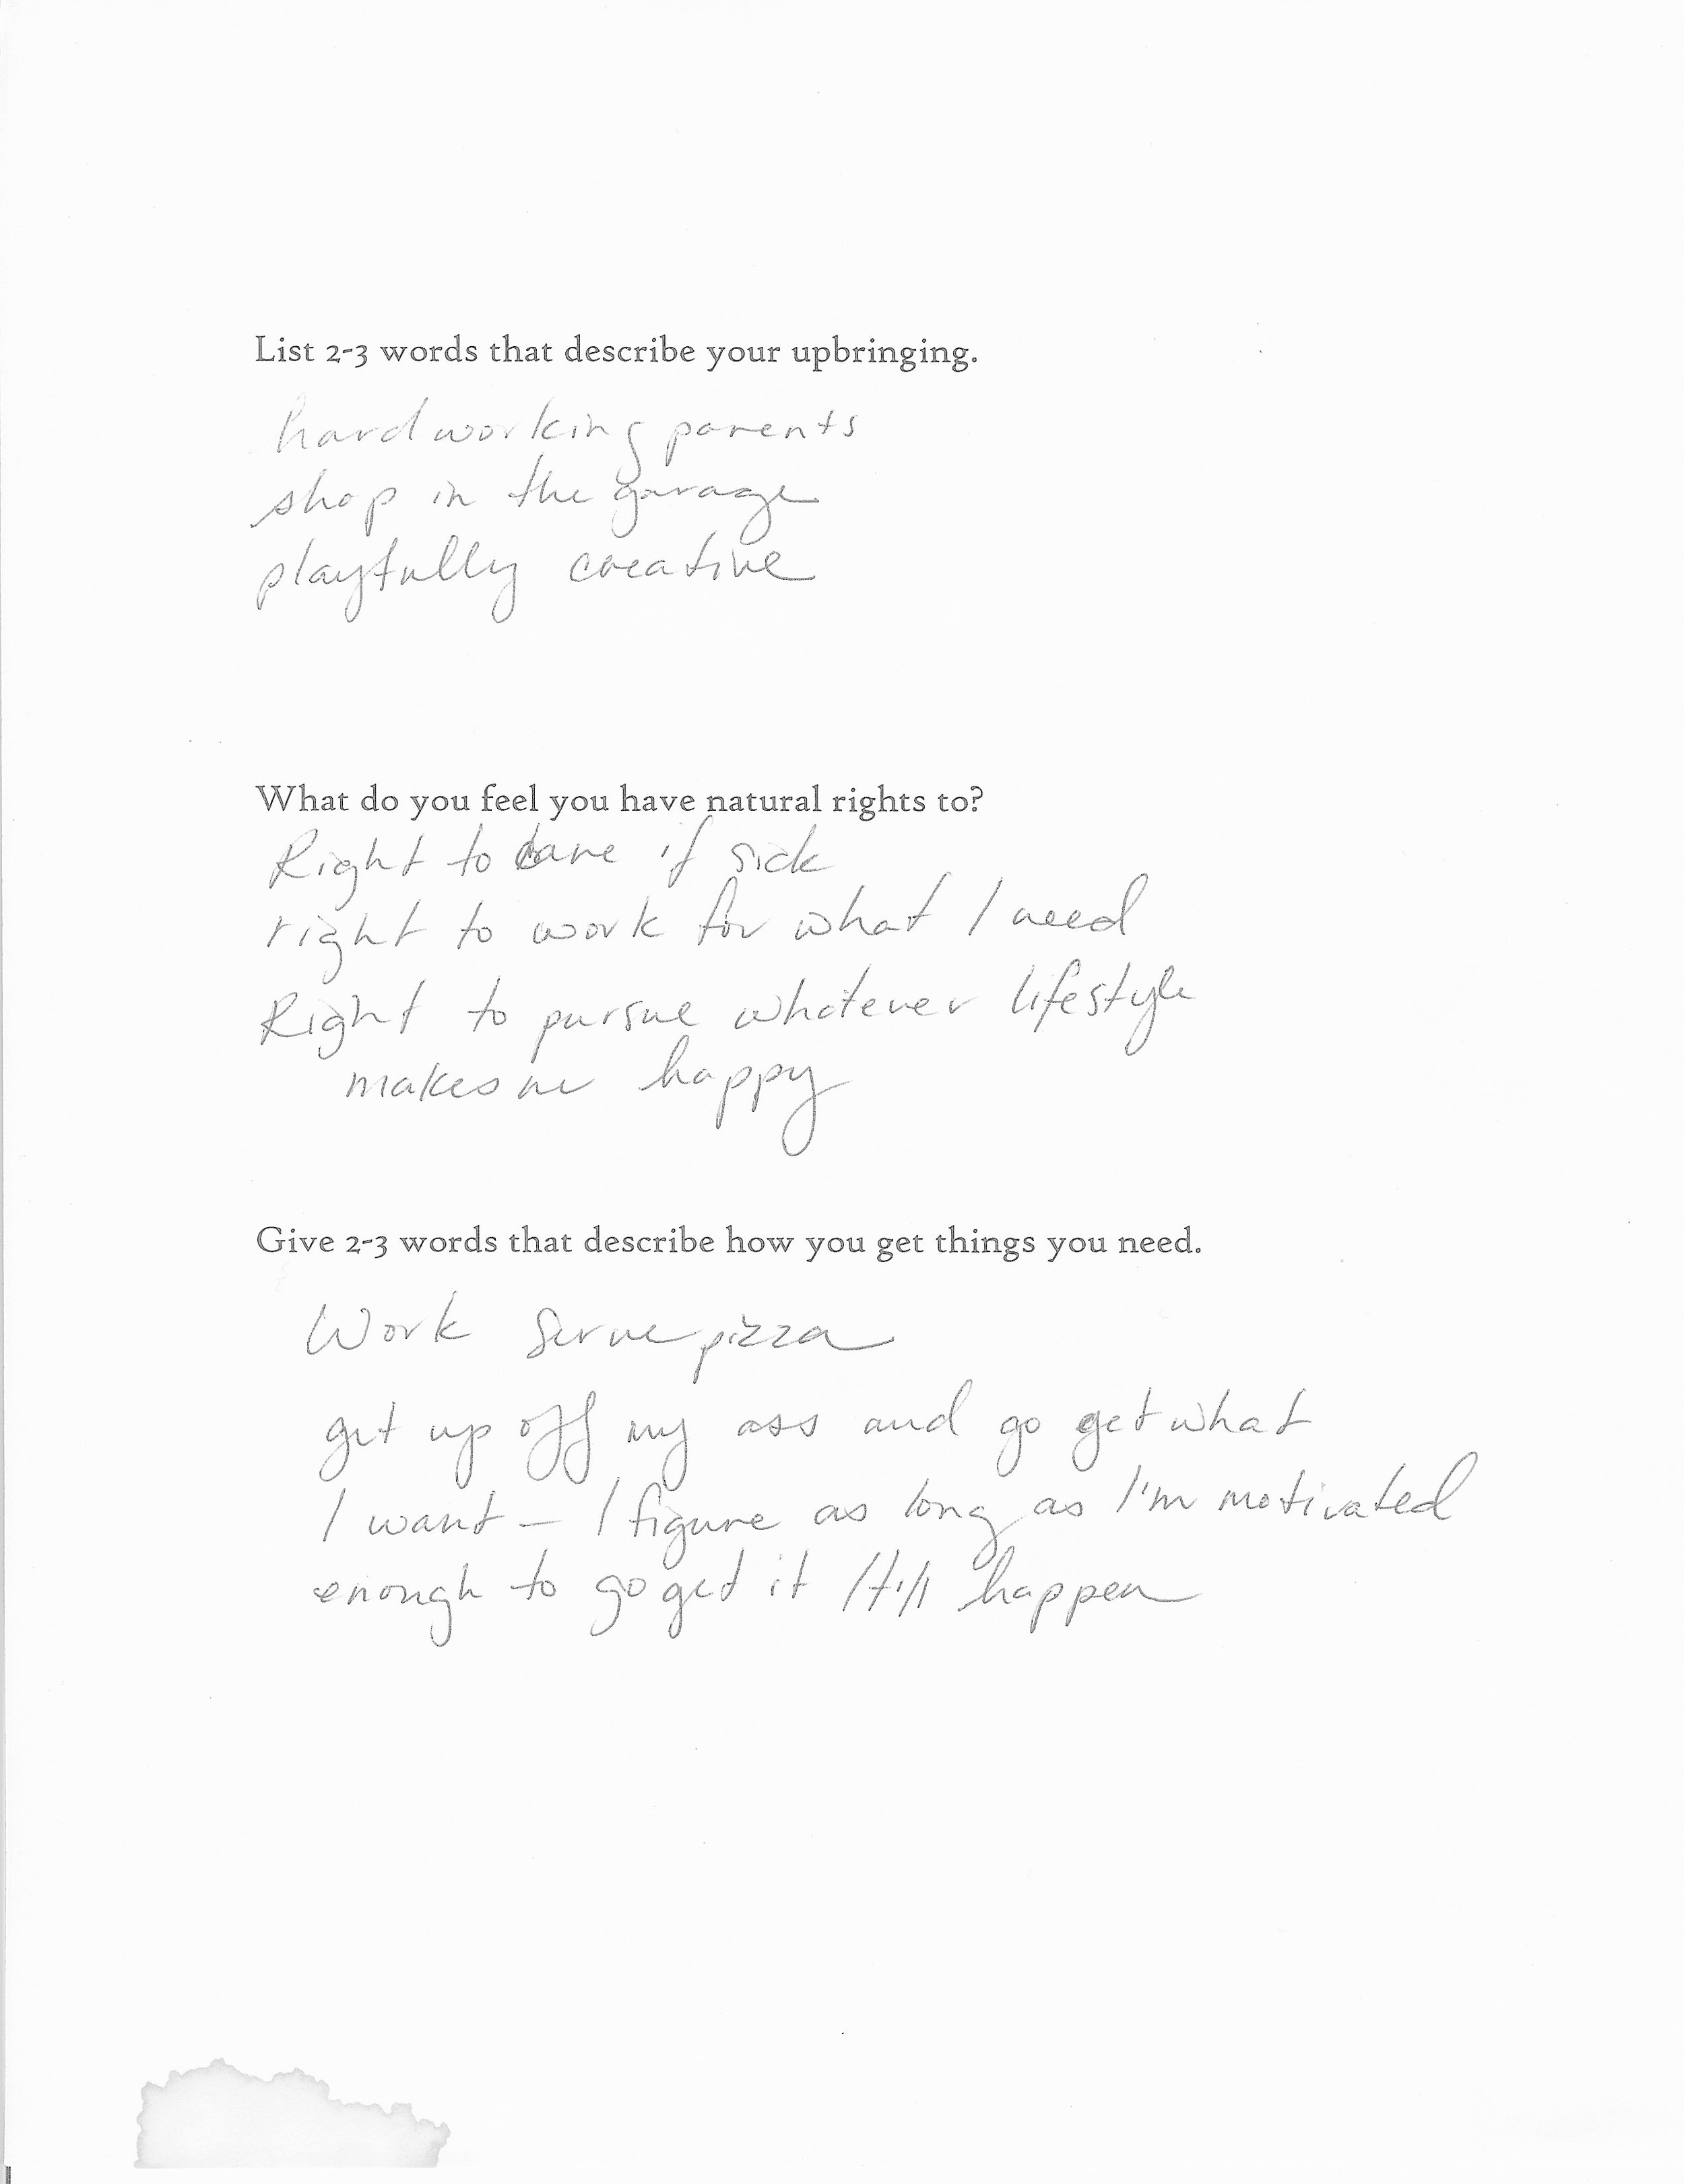 List 2-3 words that describe your upbringing.
hardworking parents
shop in the garage
playfully creative
What do you feel you have natural rights to?
Right to care if sick
right to work for what I need
Right to pursue whatever lifestyle
makes me happy
Give 2-3 words that describe how you get things you need.
Work Serve pizza
get up off my ass and go get what
I want – I figure as long as I'm motivated
enough to go get it It'll happen